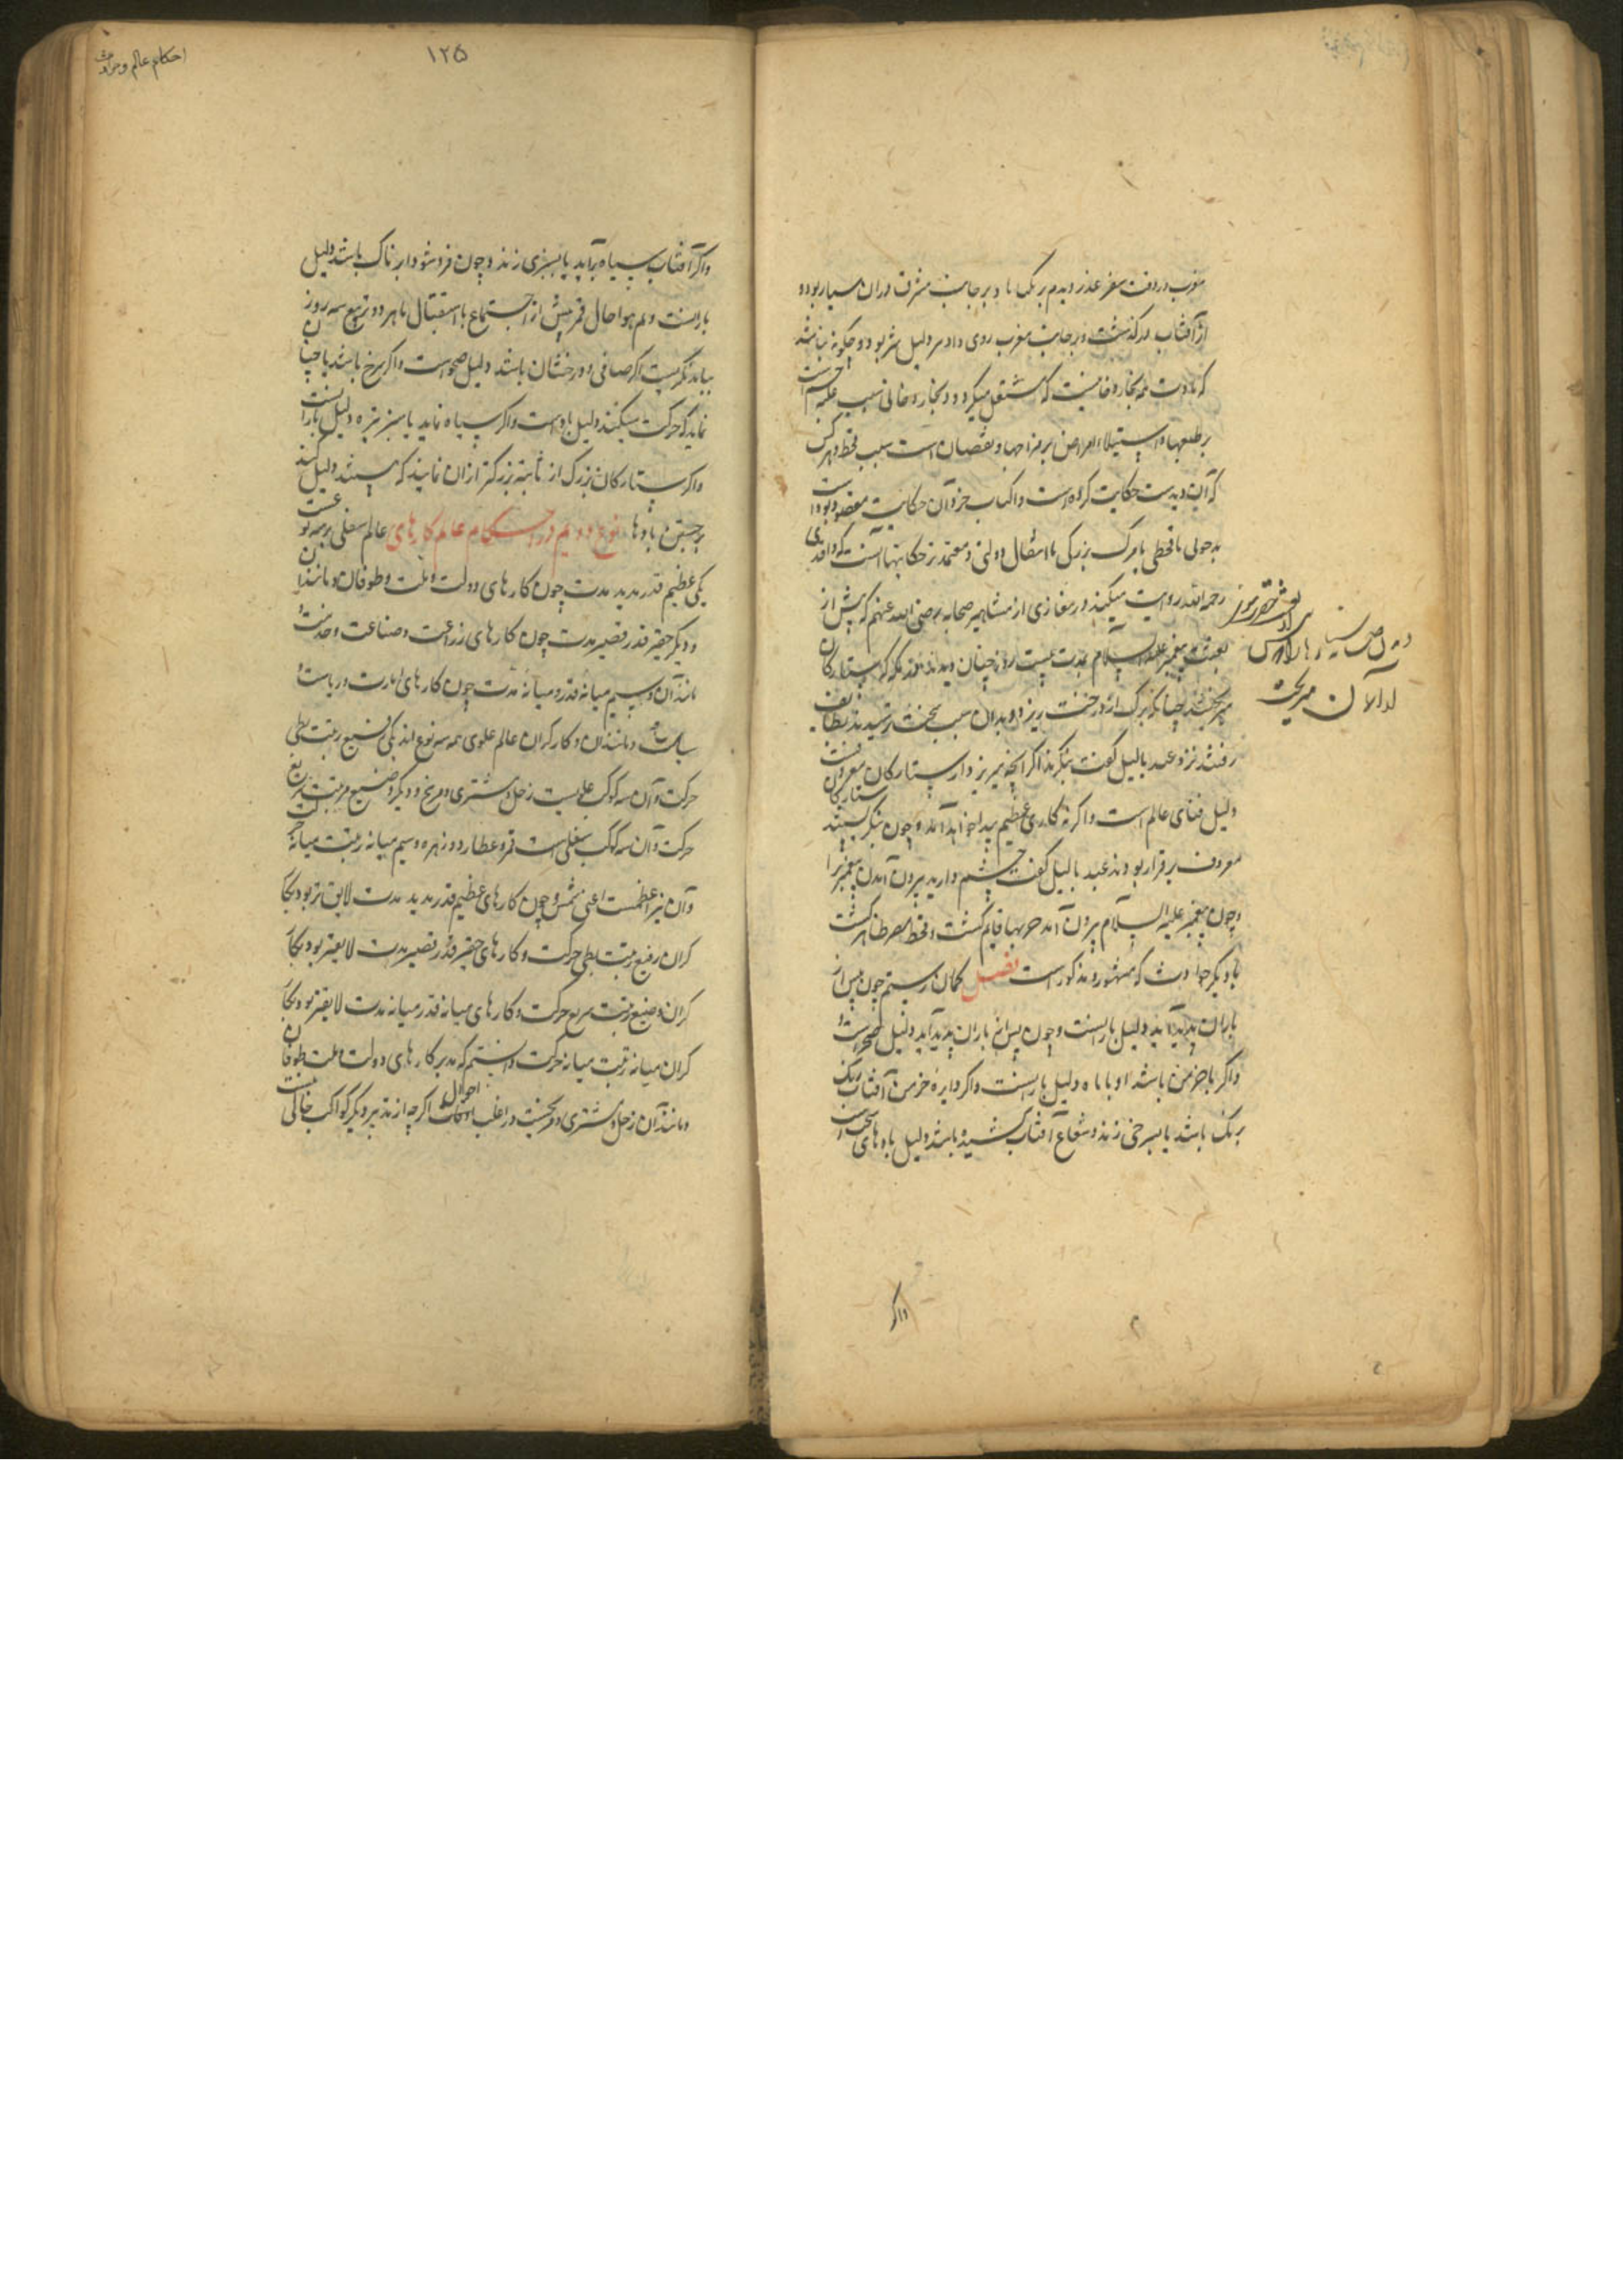 مغرب در وقت سفر عذر دیدم بر یک ماه و بر جانب مشرق دران بسیار بود و
از آفتاب در گذشت و بر جانب مغرب روی داد هر دلیل شر بود و چگونه نباشد
که مادت همه بخار دخانیست که مشتعل میکردد و بخار دخانی سبب غلبه خشم است
بر طبعها و استیلاء امراض بر مزاجها و نقصان است سبب قحط و هر کس
که آن دیدست حکایت کرده است و اکتساب جز و آن حکایت مقصود بوداست
به حولی یا قحطی یا مرک بزرکی یا انتقال دولتی و معتمدتر حکایتها آنست که واقدی
رحمه الله روایت میکند در مغازی از مشاهیر صحابه رضی الله عنهم که پیش از
بعثت پیغمبر علیه السلام بمدت بیست روز چنان دیدند که ستارکان
میریختند چنانکه برک از درخت ریزد و بدان سبب سخت ترسیدند بطایف
رفتند نزد عبد یالیل گفت بنکرید اگر آنچه میریزد از ستارکان معروفست
دلیل فنای عالم است و اکرنه کاری عظیم پیدا خواهد آمد و چون بنکریستند ستارکان
معروف برقرار بودند عبد یالیل گفت چشم دارید بیرون آمدن پیغمبر را
و چون پیغمبر علیه السلام بیرون آمد حربها قایم کشت و قحط مصر ظاهر کشت
با دیکر حوادث که مشهور و مذکور است فصل کمان رستم چون پس از
باران پدید آید دلیل بارانست و چون پس از باران پدید آید دلیل صحو است و
و اکر با خرمن باشد او با ماه دلیل بارانست و اکر دایره خرمن آفتاب رنک
برنک باشد یا بسرخی زند و شعاع آفتاب کشیده باشد دلیل بادهای سخت است
واکر
احکام عالم و موالید
۱۲۵
و اکر آفتاب سیاه برآید یا بسبزی زند و چون فرو شود ابرناک باشد دلیل
بارانست و هم هوا حال قمر پیش از اجتماع یا استقبال یا هر دو تربیع سه روز
بباید نکریست اکر صافی و درخشان باشد دلیل صحو است و اکر سرخ باشد یا چنان
نماید که حرکت میکند دلیل باد است و اکر سیاه نماید یا سبز تیره دلیل بارانست
و اکر ستارکان بزرک از ثابته بزرکتر ازان نمایند که هستند دلیل کنند
بر جستن بادها نوع دویم در احکام عالم کارهای عالم سفلی بر سه نوعست
یکی عظیم قدر مدید مدت چون کارهای دولت و ملت و طوفان و مانند آن
و دیکر حقیر قدر قصیر مدت چون کارهای زراعت و صناعت و خدمت و
مانند آن و سیم میانه قدر و میانه مدت چون کارهای امارت و ریاست و
سیاست و مانند آن و کارکران عالم علوی همه سه نوع اند یکی رفیع رتبت بطی
حرکت و آن سه کوکب علویست زحل و مشتری و مریخ و دیکر وضیع مرتبت سریع
حرکت و آن سه کوکب سفلی است قمر و عطارد و زهره و سیم میانه رتبت میانه حرکت
و آن نیر اعظمست اعنی شمس و چون کارهای عظیم قدر مدید مدت لایق تر بود بکار
کران رفیع رتبت بطی حرکت و کارهای حقیر قدر قصیر مدت لایقتر بود بکار
کران وضیع رتبت سریع حرکت و کارهای میانه قدر میانه مدت لایقتر بود بکار
کران میانه رتبت میانه حرکت دانستیم که مدبر کارهای دولت و ملت و طوفان
و مانند آن زحل و مشتری و مریخست در اغلب احوال اکرچه از تدبیر دیکر کواکب خالی نیست